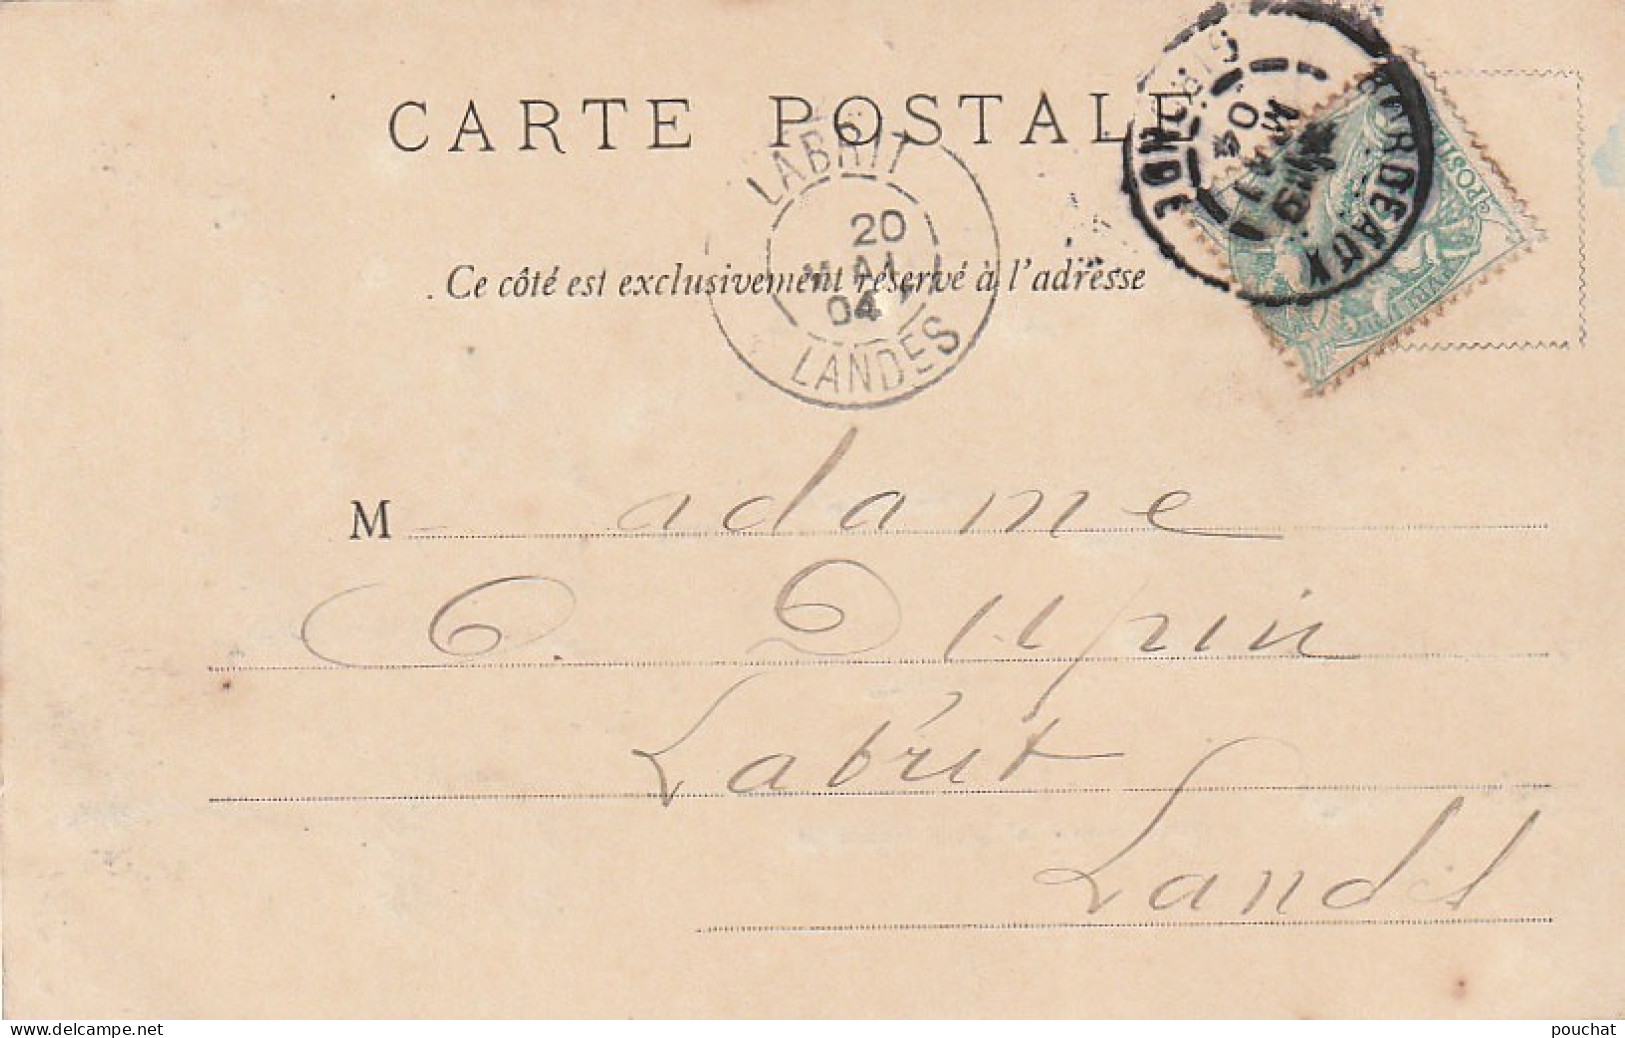 CARTE POSTALE
Ce côté est exclusivement réservé à l'adresse
LABRIT
20
MAI
04
LANDES
BORDEAUX
GIRONDE
MAI
04
POSTES
M adame
C. Dupin
Labrit
Landes
www.delcampe.net
pouchat